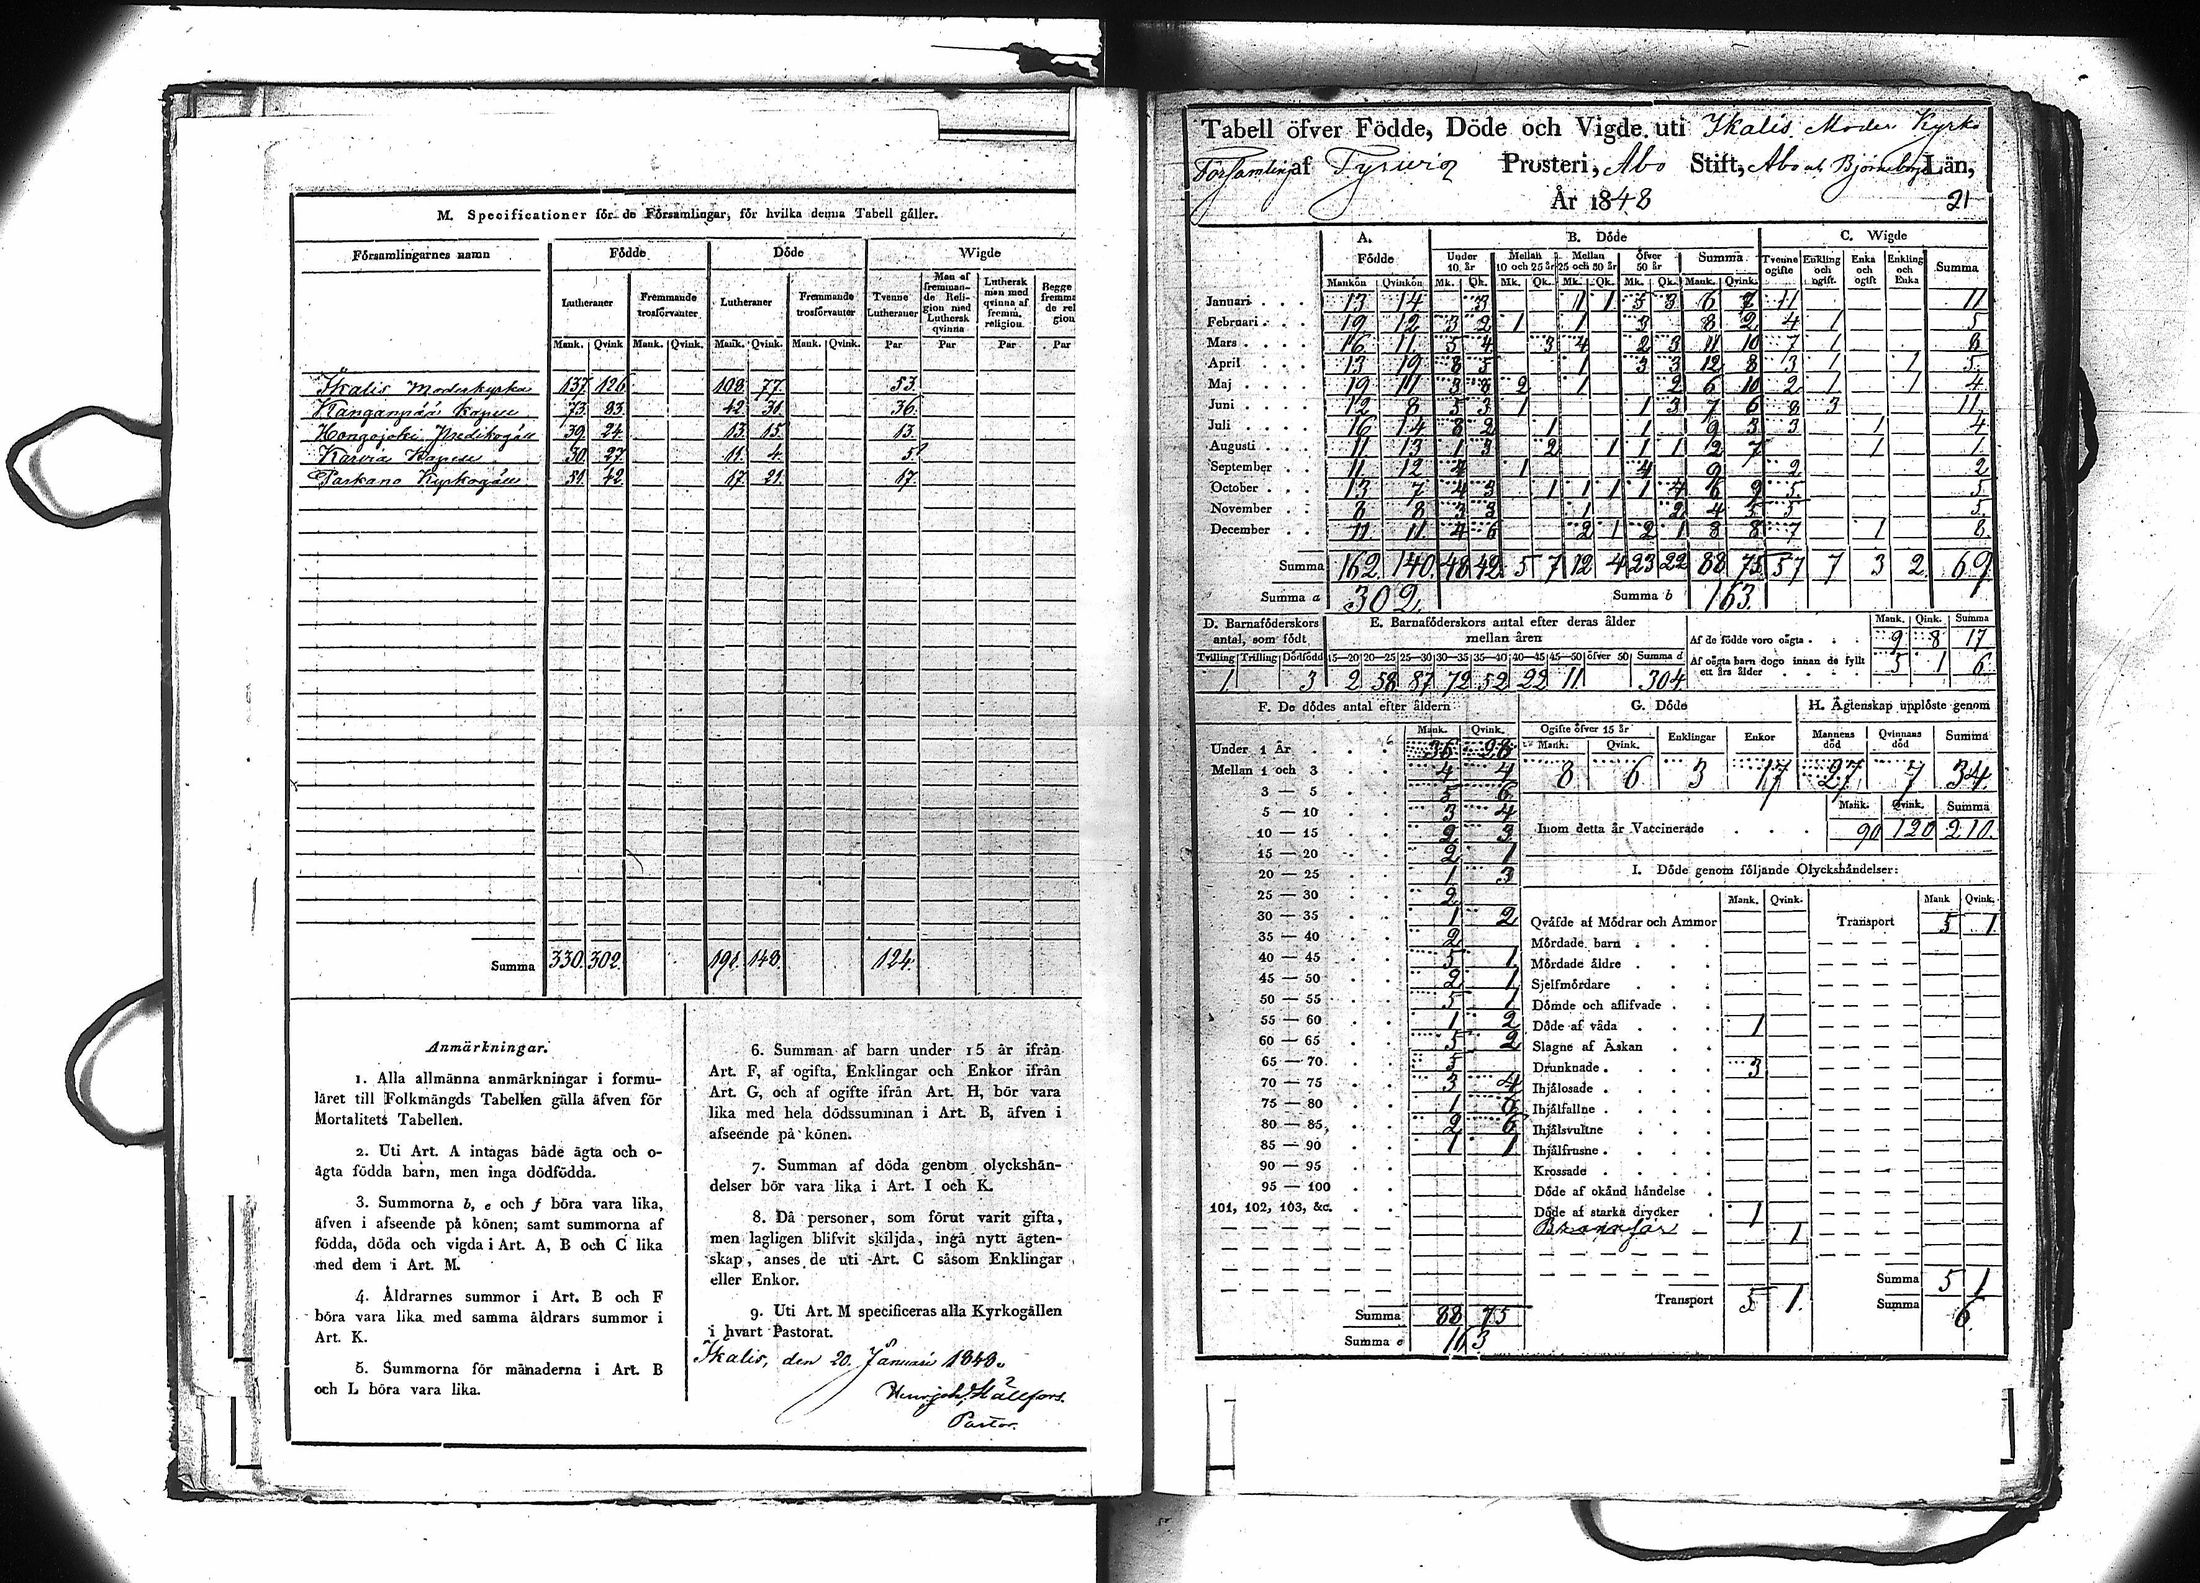 M. Specificationer för de Församlingar, för hvilka denna Tabell gäller.
Församlingarnes namn Födde Döde Wigde
Lutheraner Fremmande trosförvanter Lutheraner Fremmande trosförvanter Tvenne Lutheraner Man af fremmande Religion med Luthersk qvinna Luthersk man med qvinna af fremm. religion Begge fremma de reli gion
Mank. Qvink Mank. Qvink. Mank. Qvink. Mank. Qvink. Par Par Par Par
Ikalis Moderkyrka 137. 126 108. 77. 53.
Kanganpää Kapell 73. 83 42. 31. 36.
Hongojoki Predikogäll 39. 24. 13. 15. 13.
Karvia Kapell 30. 27. 11. 4. 5
Parkano Kyrkogäll 51. 42. 17. 21. 17.
Summa 330. 302. 191. 148. 124.
Anmärkningar.
1. Alla allmänna anmärkningar i formu-
läret till Folkmängds Tabellen gälla äfven för
Mortalitets Tabellen.
2. Uti Art. A intagas både ägta och o-
ägta födda barn, men inga dödfödda.
3. Summorna b, e och f böra vara lika,
äfven i afseende på könen; samt summorna af
födda, döda och vigda i Art. A, B och C lika
med dem i Art. M.
4. Åldrarnes summor i Art. B och F
böra vara lika med samma åldrars summor i
Art. K.
5. Summorna för månaderna i Art. B
och L böra vara lika.
6. Summan af barn under 15 år ifrån
Art. F, af ogifta, Enklingar och Enkor ifrån
Art. G, och af ogifte ifrån Art. H, bör vara
lika med hela dödssumman i Art. B, äfven i
afseende på könen.
7. Summan af döda genom olyckshän-
delser bör vara lika i Art. I och K.
8. Då personer, som förut varit gifta,
men lagligen blifvit skiljda, ingå nytt ägten-
skap, anses de uti Art. C såsom Enklingar
eller Enkor.
9. Uti Art. M specificeras alla Kyrkogällen
i hvart Pastorat.
Ikalis, den 20. Januari 1849.
Hällfors.
Pastor.
Tabell öfver Födde, Döde och Vigde uti Ikalis Moder Kyrko
Församling af Tyrvis Prosteri, Åbo Stift, Åbo och Björneborgs Län,
År 1848
21
A. Födde B. Döde C. Wigde
Under 10 år Mellan 10 och 25 år Mellan 25 och 50 år Öfver 50 år Summa Tvenne ogifte Enkling och ogift Enka och ogift Enkling och Enka Summa
Mankön Qvinkön Mk. Qk. Mk. Qk. Mk. Qk. Mk. Qk. Mank. Qvink.
Januari 13 14 3 1 1 5 3 6 7 11 11
Februari 19 12 3 2 1 1 3 8 2 4 1 5
Mars 16 11 5 4 3 4 2 3 11 10 7 1 8
April 13 19 8 5 1 3 3 12 8 3 1 1 5
Maj 19 11 3 8 2 1 2 6 10 2 1 1 4
Juni 12 8 5 3 1 1 3 7 6 8 3 11
Juli 16 14 8 2 1 1 9 3 3 1 4
Augusti 11 13 1 3 2 1 1 1 2 7 1 1
September 11 12 4 1 4 9 2 2
October 13 7 4 3 1 1 1 1 4 6 9 5 5
November 8 8 3 3 1 2 4 5 5 5.
December 11 11 4 6 2 1 2 1 8 8 7 1 8
Summa 162 140 48 42 5 7 12 4 23 22 88 75 57 7 3 2 69
Summa a 302 Summa b 163.
D. Barnaföderskors antal, som födt
E. Barnaföderskors antal efter deras ålder mellan åren
Tvilling Trilling Dödfödd 15—20 20—25 25—30 30—35 35—40 40—45 45—50 öfver 50 Summa d
1 3 2 58 87 72 52 22 11 304.
Mank. Qink. Summa
Af de födde voro oägta 9 8 17
Af oägta barn dogo innan de fyllt ett års ålder 5 1 6
F. De dödes antal efter åldern
Mank. Qvink.
Under 1 År 36 28
Mellan 1 och 3 4 4
3 — 5 5 6
5 — 10 3 4
10 — 15 2 3
15 — 20 2 1
20 — 25 1 3
25 — 30 2
30 — 35 1 2
35 — 40 2
40 — 45 5 1
45 — 50 2 1
50 — 55 5 1
55 — 60 1 2
60 — 65 5 2
65 — 70 5
70 — 75 3 4
75 — 80 1 6
80 — 85 2 6
85 — 90 1 1
90 — 95
95 — 100
101, 102, 103, &c.
Summa 88 75
Summa e 163
G. Döde
Ogifte öfver 15 år Enklingar Enkor
Mank. Qvink.
8 6 3 17
H. Ägtenskap upplöste genom
Mannens död Qvinnans död Summa
27 7 34.
Mank. Qvink. Summa
Inom detta år Vaccinerade 90 120 210.
I. Döde genom följande Olyckshändelser:
Mank. Qvink. Mank Qvink.
Qväfde af Mödrar och Ammor Transport 5 1
Mördade barn
Mördade äldre
Sjelfmördare
Dömde och aflifvade
Döde af våda 1
Slagne af Åskan
Drunknade 3
Ihjälosade
Ihjälfallne
Ihjälsvultne
Ihjälfrusne
Krossade
Döde af okänd händelse
Döde af starka drycker 1
Brännsår 1
Summa 5 1
Transport 5 1. Summa 6.